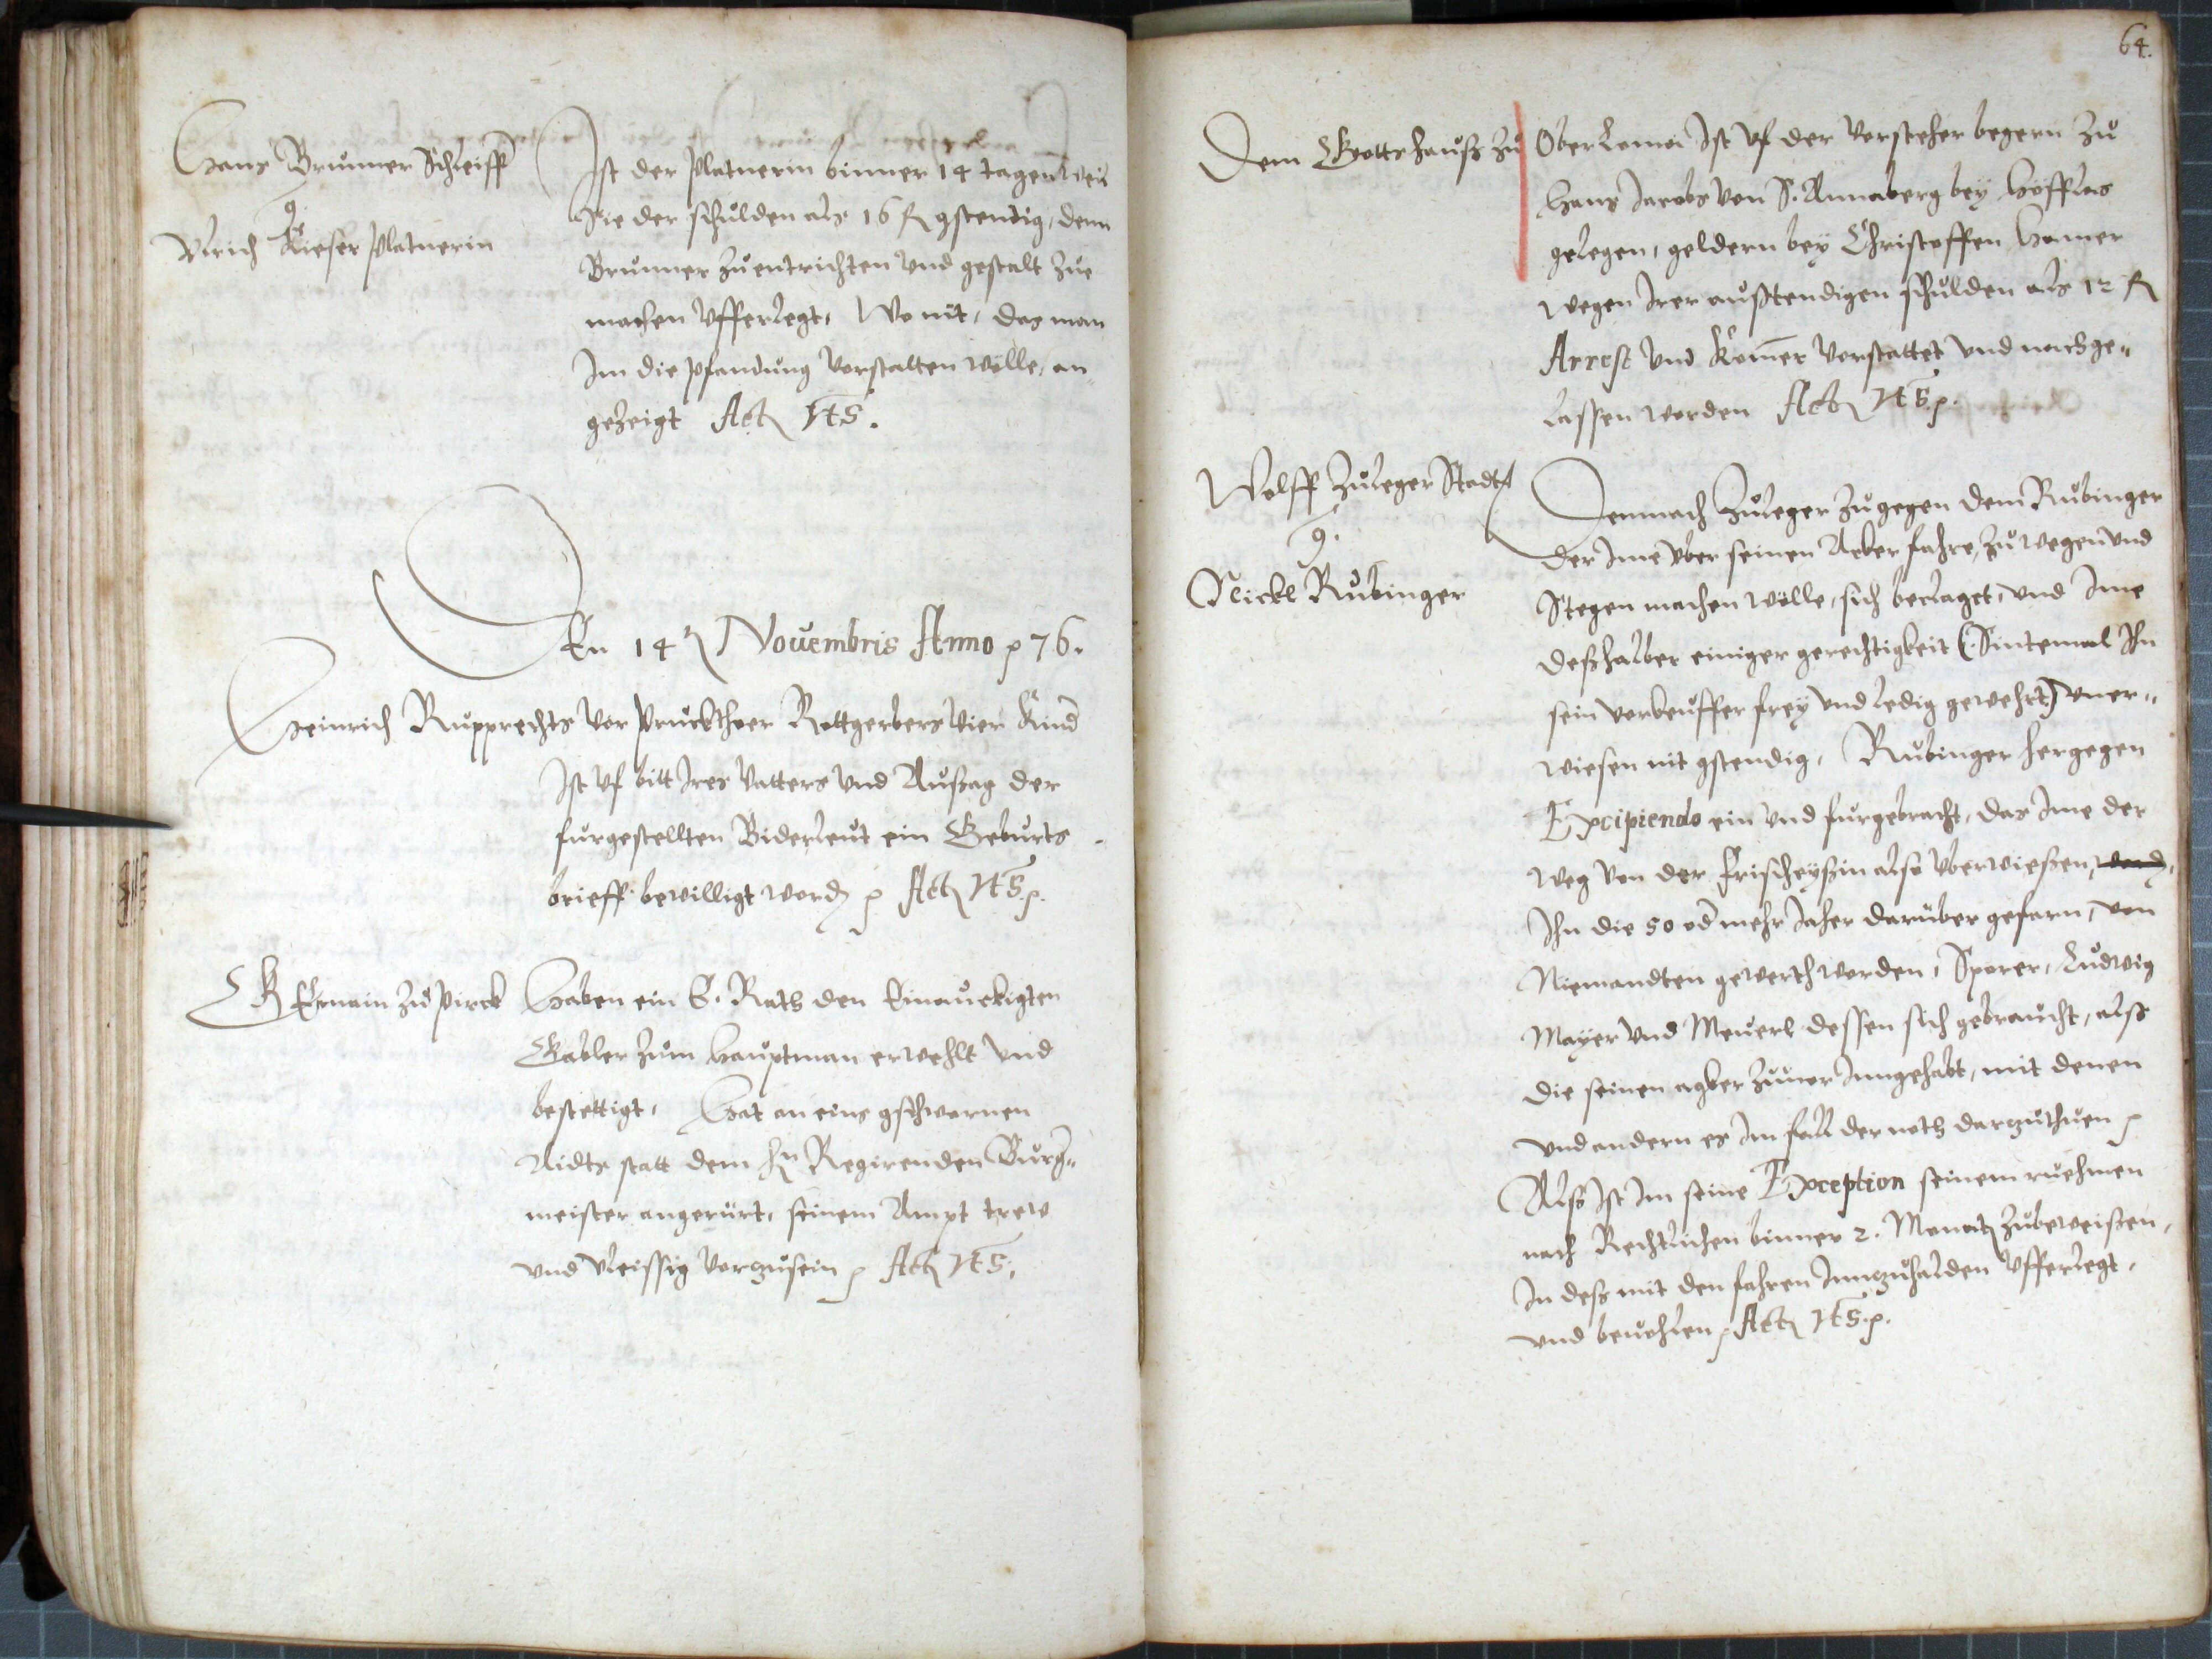 Hans Brunner Schleiff
g.
Vlrich Kieser Platnerin
Ist der Platnerin binner 14 tagen weil
Sie der schulden als 16 fl gstendig, dem
Brunner zu entrichten vnd gestalt zue
machen vfferlegt, Wo nit, das man
Im die pfandung verstatten wölle, an„
gezeigt Act vts.
Den 14 Nouembris Anno p 76.
Heinrich Rupprechts vor Pruckthor Rottgerbers vier Kind
Ist vf bitt Ires Vatters vnd Außag der
furgestellten Biderleut ein Geburts
brieff bewilligt word p Act vts p.
Gemain zu Pirck
Haben ein E. Rath den Einaukigten
Gabler zum Hauptman erwehlt vnd
bestettigt, Hat an eins gschwornen
Aidts statt dem hn Regirenden Burg„
meister angerürt, seinem Ampt trew
vnd vleissig vorzusein p Act vts.
64.
Dem Gottshauß zu
Ober Lomei Ist vf der vorsteher begern zu
Hans Jacobs von S. Annaberg bey Höfflas
gelegen, geldern bey Christoffen Homer
wegen Irer außtendigen schulden als 12 fl
Arrest vnd Komer verstattet vnd nachge„
lassen worden Act vts p.
Wolff Zuleger Stadt
g.
Nickl Rubinger
Demnach Zuleger zugegen dem Rubinger
der Ime vber seinen Acker fahre, zu wegen vnd
Stegen machen wölle, sich beclaget, vnd Ime
deßhalber einiger gerechtigkeit (Sintemal Ihn
sein verkeuffer frey vnd ledig gewehrt) vner„
wiesen nit gstendig, Rubinger hergegen
Excipiendo ein vnd furgebracht, das Ime der
weg von der Frischeysin also vberwießen,
Ihn die 50 od mehr Jaher darüber gefarn, von
Niemandten gewerth worden, Sporer, Ludwig
Mayer vnd Meuerl dessen sich gebraucht, alß
die seinen agker zuuor Inngehabt, mit denen
vnd andern es Im fall der noth darzuthuen p
Alß Ist Im seine Exception seinem ruehmen
nach Rechtlichen binner 2. Monat zubeweißen,
In deß mit den fahren Innzuhalden vfferlegt,
vnd beuohlen p Act vts p.